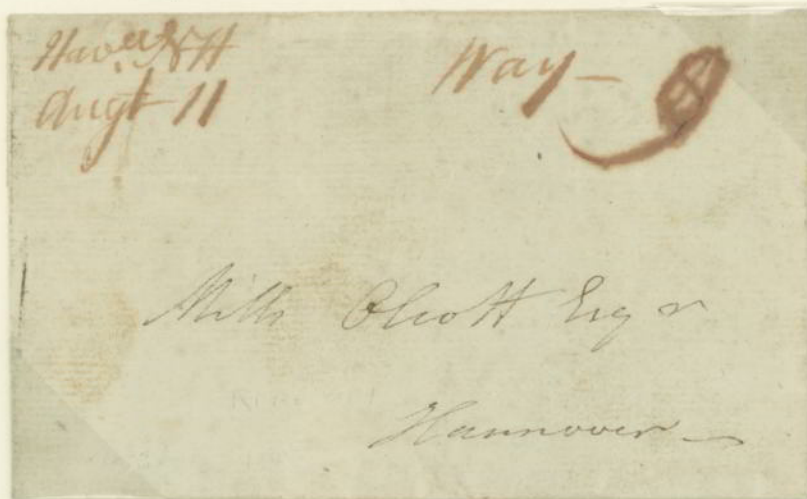 Hav.ll NH Way - 9
Augt 11
Mills Olcott Esqr
Hannover -